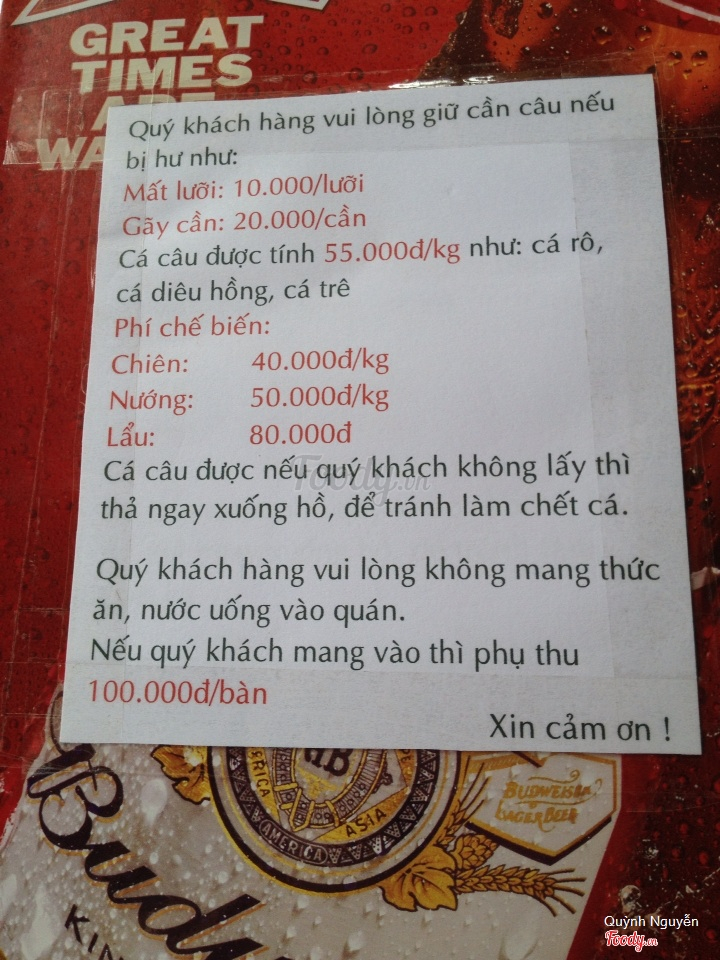 GREAT
TIMES
ARE
WA
Quý khách hàng vui lòng giữ cần câu nếu
bị hư như:
Mất lưỡi: 10.000/lưỡi
Gãy cần: 20.000/cần
Cá câu được tính 55.000đ/kg như: cá rô,
cá diêu hồng, cá trê
Phí chế biến:
Chiên: 40.000đ/kg
Nướng: 50.000đ/kg
Lẩu: 80.000đ
Cá câu được nếu quý khách không lấy thì
thả ngay xuống hồ, để tránh làm chết cá.
Quý khách hàng vui lòng không mang thức
ăn, nước uống vào quán.
Nếu quý khách mang vào thì phụ thu
100.000đ/bàn
Xin cảm ơn !
Foody.vn
AMERICA
ASIA
BUDWEISER
LAGER BEER
Budw
KIN
Quỳnh Nguyễn
Foody.vn